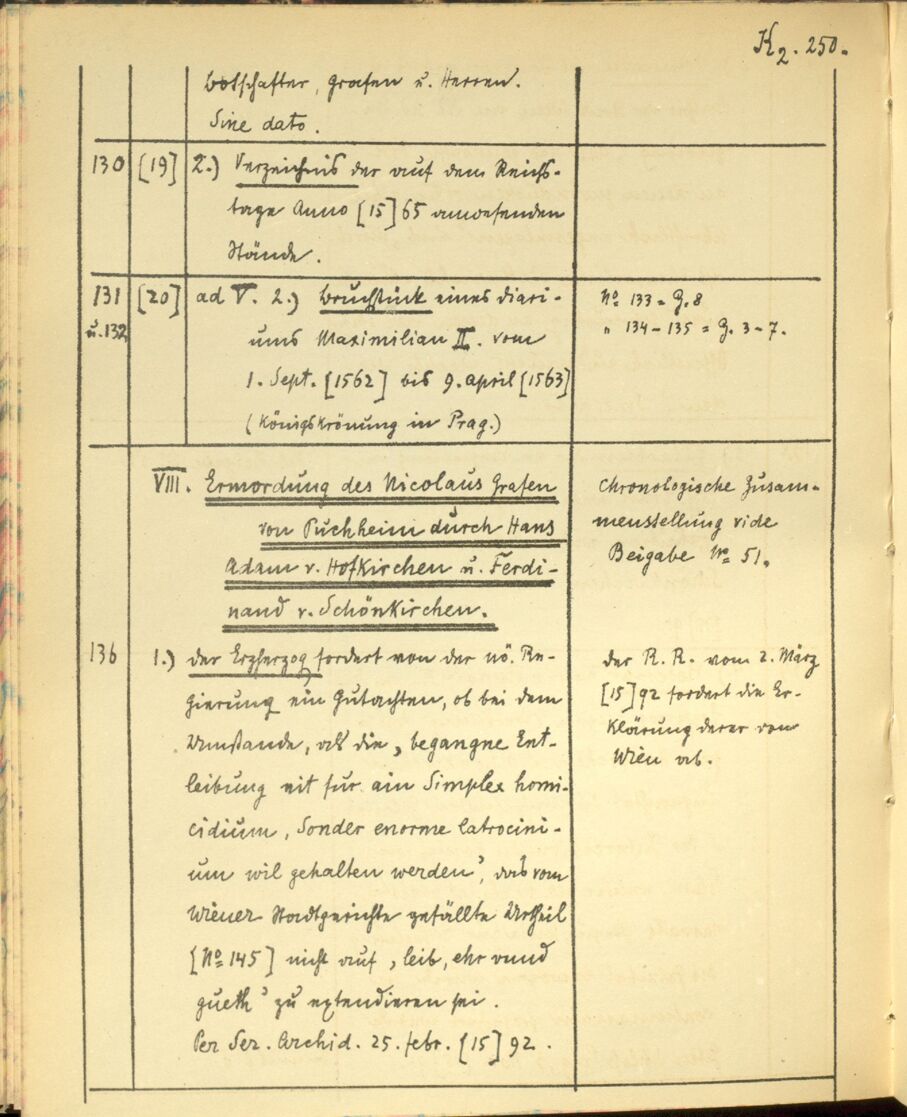 K2. 250.
Botschafter, Grafen u. Herren.
Sine dato.
130 [19] 2.) Verzeichnis der auf dem Reichs-
tage Anno [15]65 anwesenden
Stände.
131 [20] ad V. 2.) Bruchstück eines Diari-
u. 132 ums Maximilian II. vom
1. Sept. [1562] bis 9. April [1563]
(Königskrönung in Prag.)
No 133 = G. 8
" 134-135 = G. 3-7.
VIII. Ermordung des Nicolaus Grafen
von Puchheim durch Hans
Adam v. Hofkirchen u. Ferdi-
nand v. Schönkirchen.
Chronologische Zusam-
menstellung vide
Beigabe No 51.
136 1.) der Erzherzog fordert von der nö. Re-
gierung ein Gutachten, ob bei dem
Umstande, als die, begangne Ent-
leibung nit für ain Simplex homi-
cidium, Sonder enorme latrocini-
um wil gehalten werden', das vom
Wiener Stadtgerichte gefällte Urtheil
[No 145] nicht auf, leib, ehr vnnd
gueth' zu extendieren sei.
Per Ser. Archid. 25. febr. [15]92.
der R. R. vom 2. März
[15]92 fordert die Er-
klärung derer von
Wien ab.